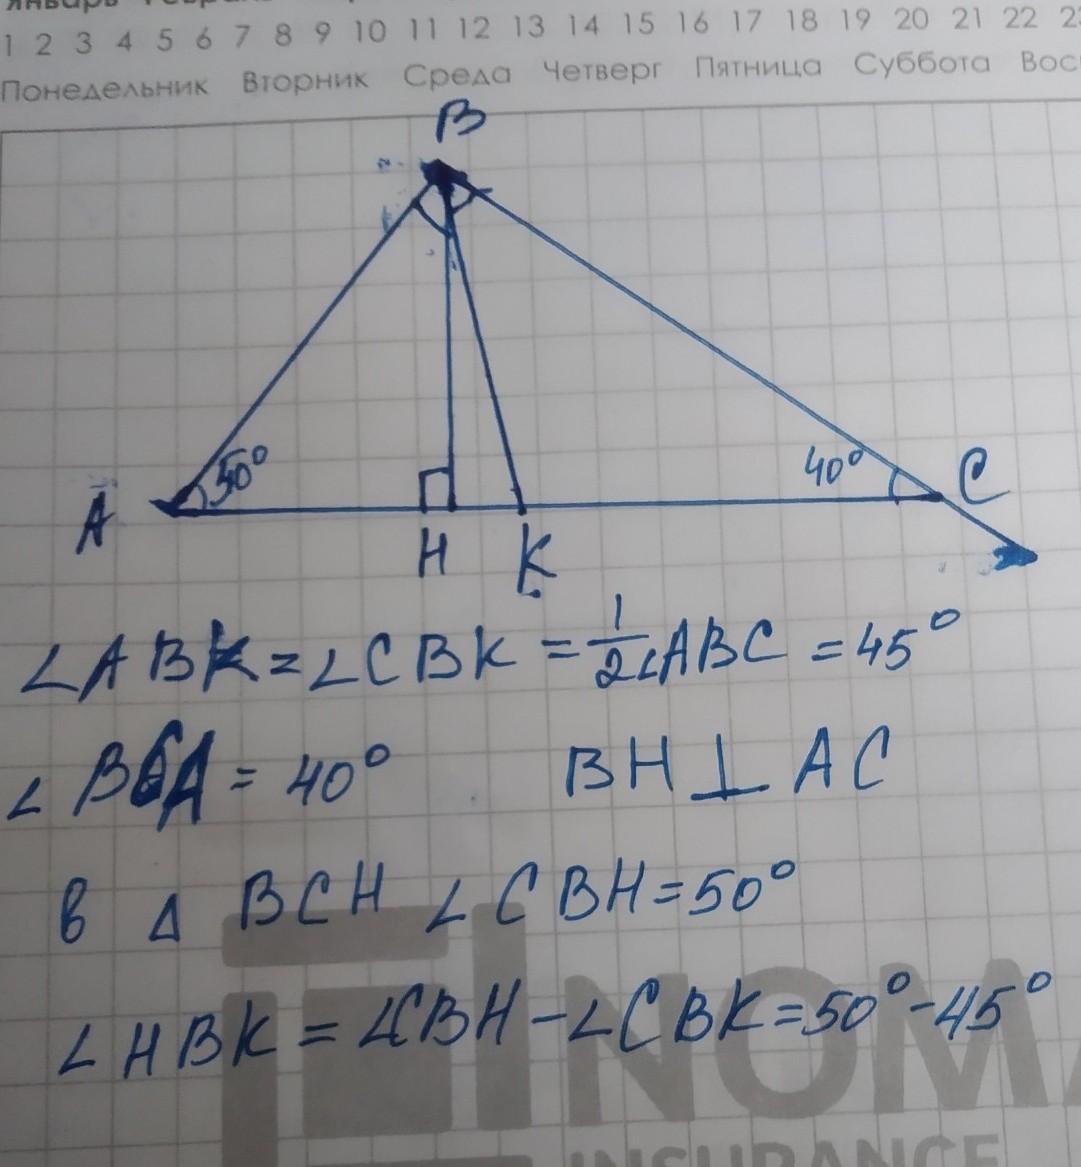 1 2 3 4 5 6 7 8 9 10 11 12 13 14 15 16 17 18 19 20 21 22
Понедельник Вторник Среда Четверг Пятница Суббота Вос
B
50° 40° C
A
H K
∠ABK = ∠CBK = 1/2∠ABC = 45°
∠BCA = 40° BH ⊥ AC
в Δ BCH ∠CBH = 50°
∠HBK = ∠CBH - ∠CBK = 50° - 45°
NOMA
INSURANCE